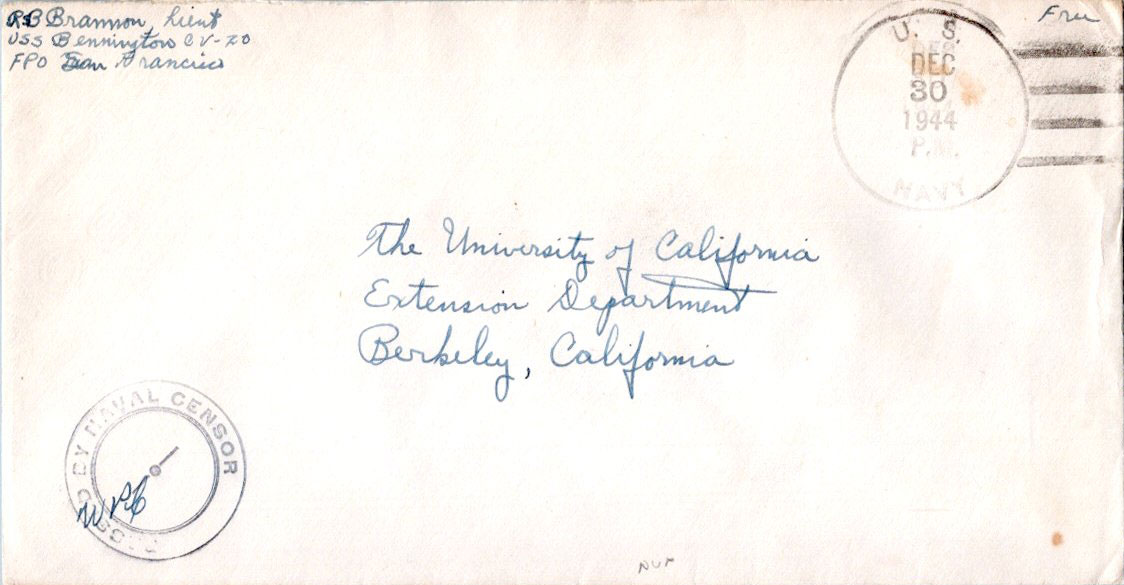 RB Brannon, Lieut
USS Bennington CV-20
FPO San Francisco
Free
U. S.
DEC
30
1944
P.M.
NAVY
The University of California
Extension Department
Berkeley, California
PASSED BY NAVAL CENSOR